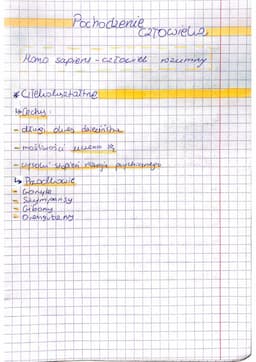 Pochodzenie
człowieka
Homo sapiens - człowiek rozumny
* Człekokształtne
↳ Cechy:
- długi okres dzieciństwa
- możliwości uczenia się
- wysoki stopień rozwoju psychicznego
↳ Przodkowie
- Goryle
- Szympansy
- Gibony
- Orangutany